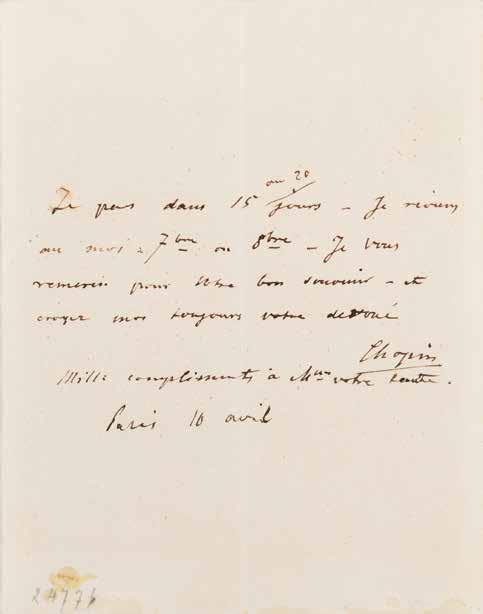 ou 20
Je pars dans 15 jours – Je reviens
au mois 7bre ou 8bre – Je vous
remercie pour votre bon souvenir – et
croyez moi toujours votre devoué
Chopin
Mille complissents à Mme votre tante.
Paris 10 avril
2477b